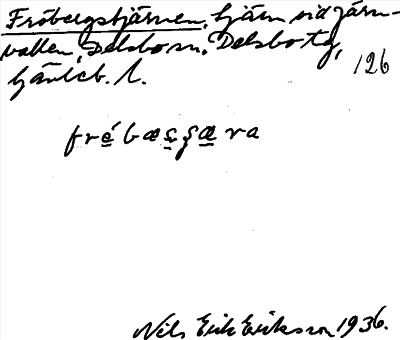 Fröbergstjärnen, tjärn vid Järn-
vallen, Delsbo sn, Delsbo tg,
Gävleb. l.
126
frébæςʂæra
Nils Erik Eriksson 1936.